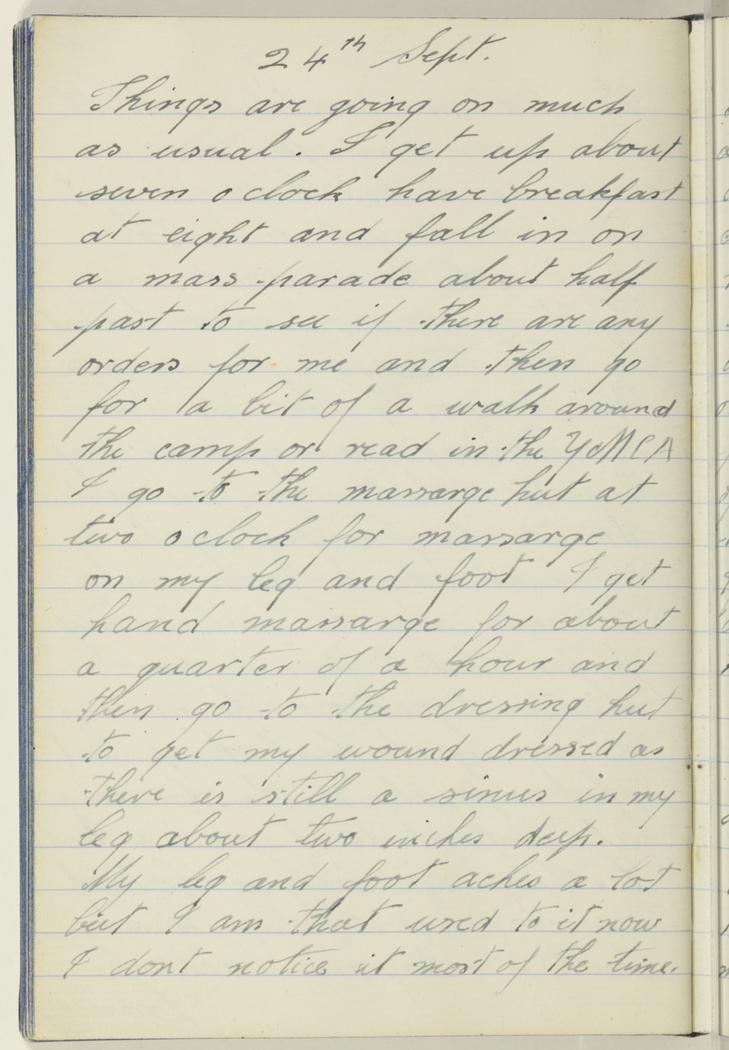 24th Sept.
Things are going on much
as usual. I get up about
seven o clock have breakfast
at eight and fall in on
a mass parade about half
past to see if there are any
orders for me and then go
for a bit of a walk around
the camp or read in the YMCA
I go to the massarge hut at
two o clock for massarge
on my leg and foot I get
hand massarge for about
a quarter of a hour and
then go to the dressing hut
to get my wound dressed as
there is still a sinus in my
leg about two inches deep.
My leg and foot aches a lot
but I am that used to it now
I dont notice it most of the time.